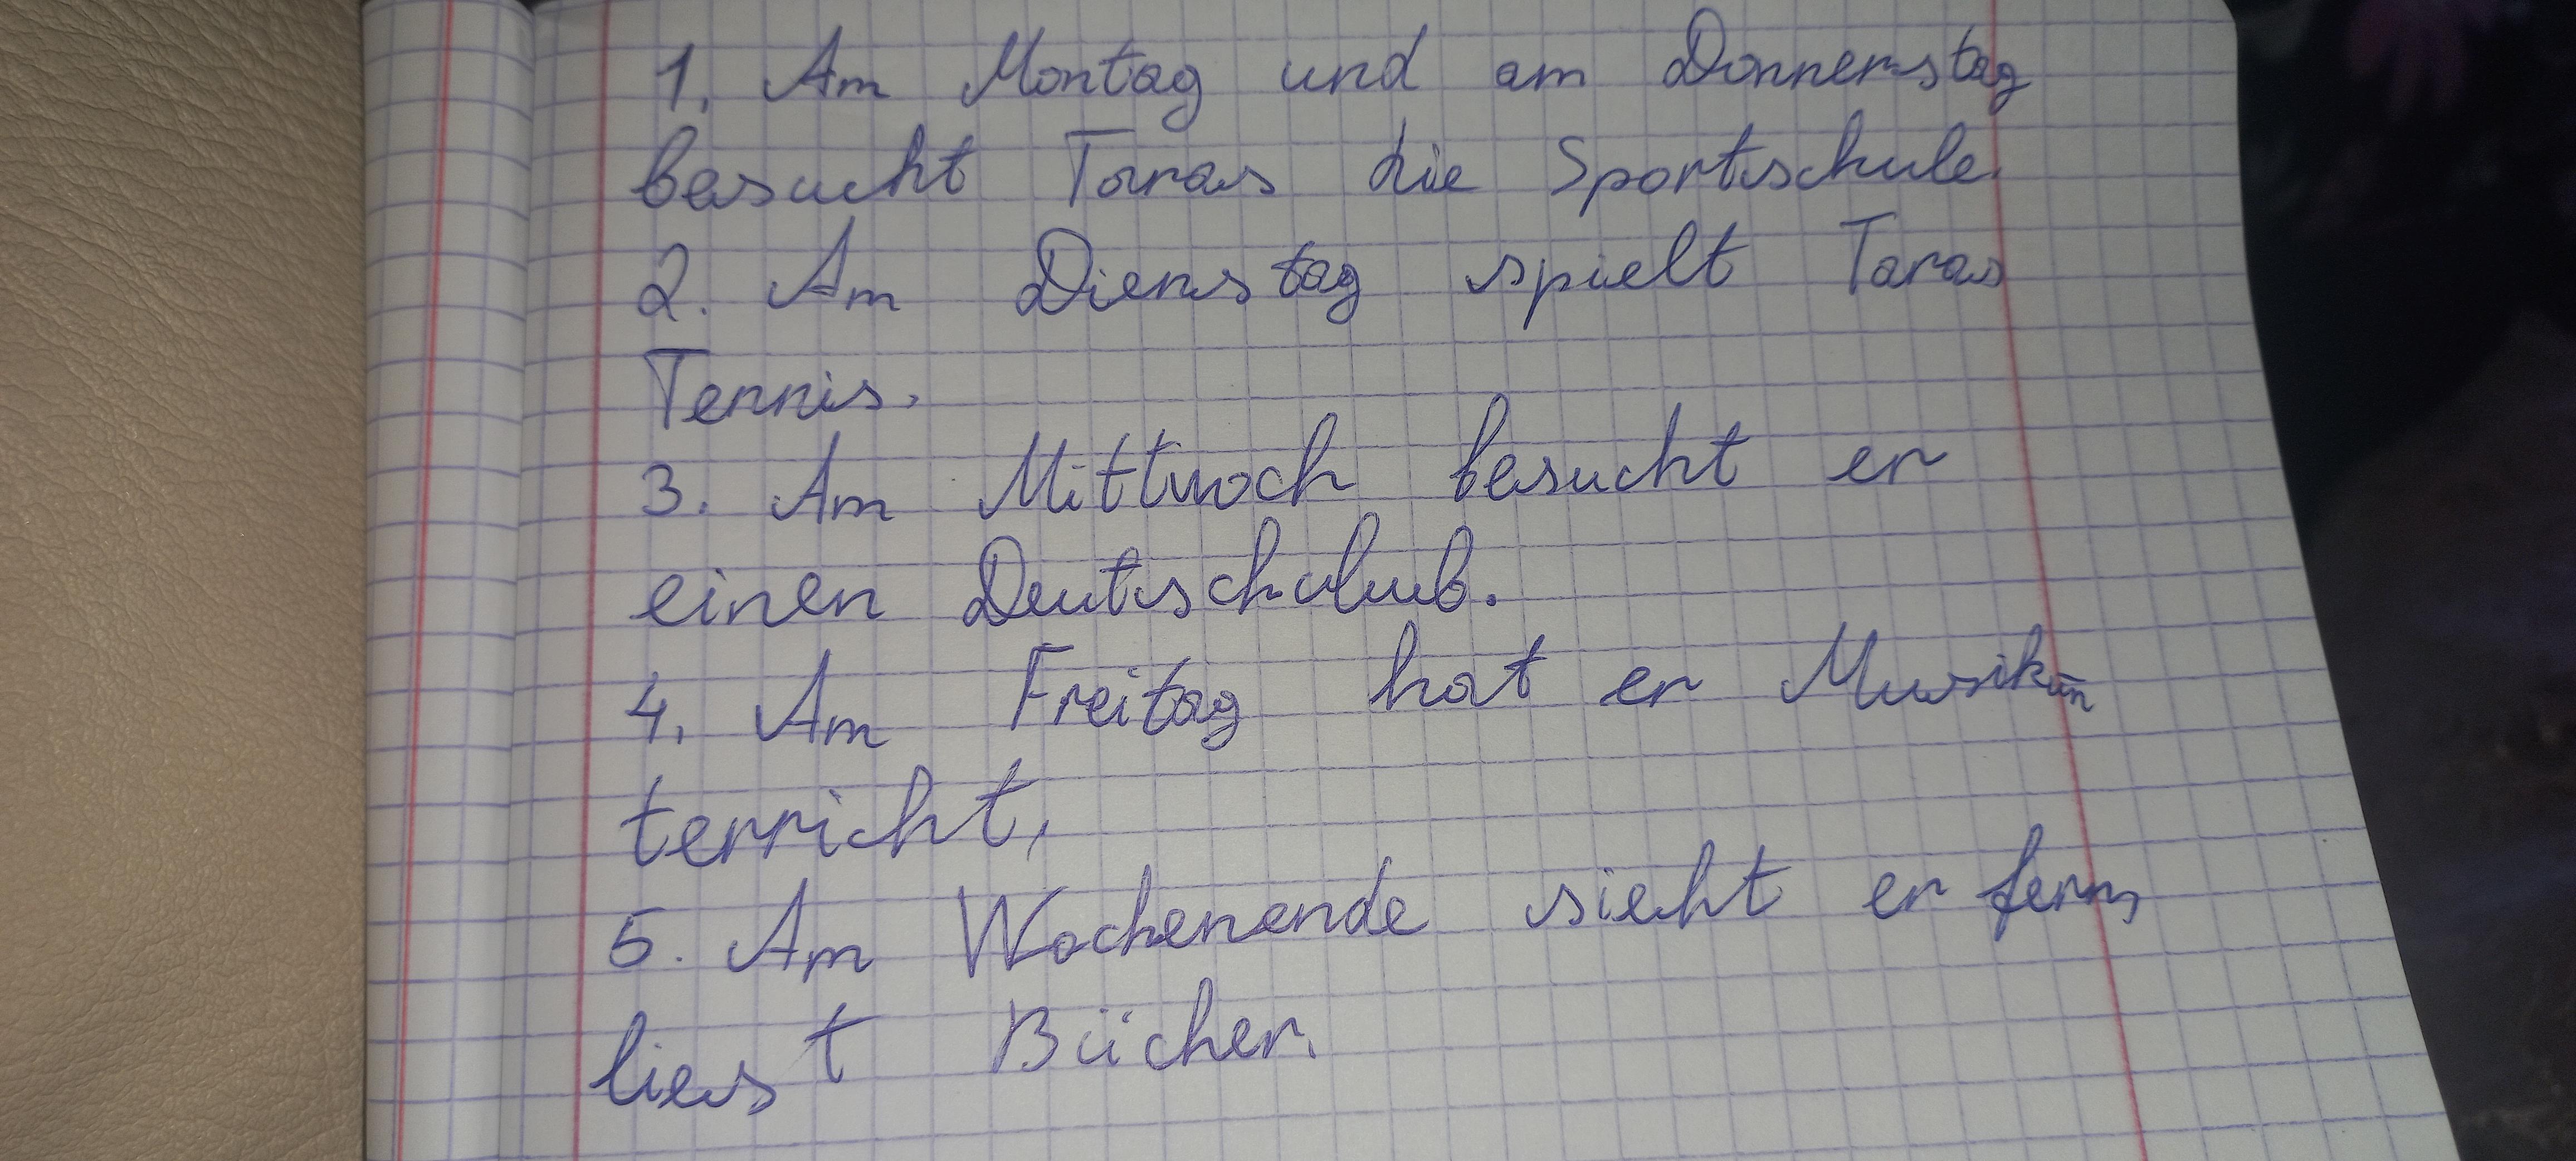 1. Am Montag und am Donnerstag
besucht Taras die Sportschule.
2. Am Dienstag spielt Taras
Tennis.
3. Am Mittwoch besucht er
einen Deutschclub.
4. Am Freitag hat er Musikun
terricht,
5. Am Wochenende sieht er fern,
liest Bücher.